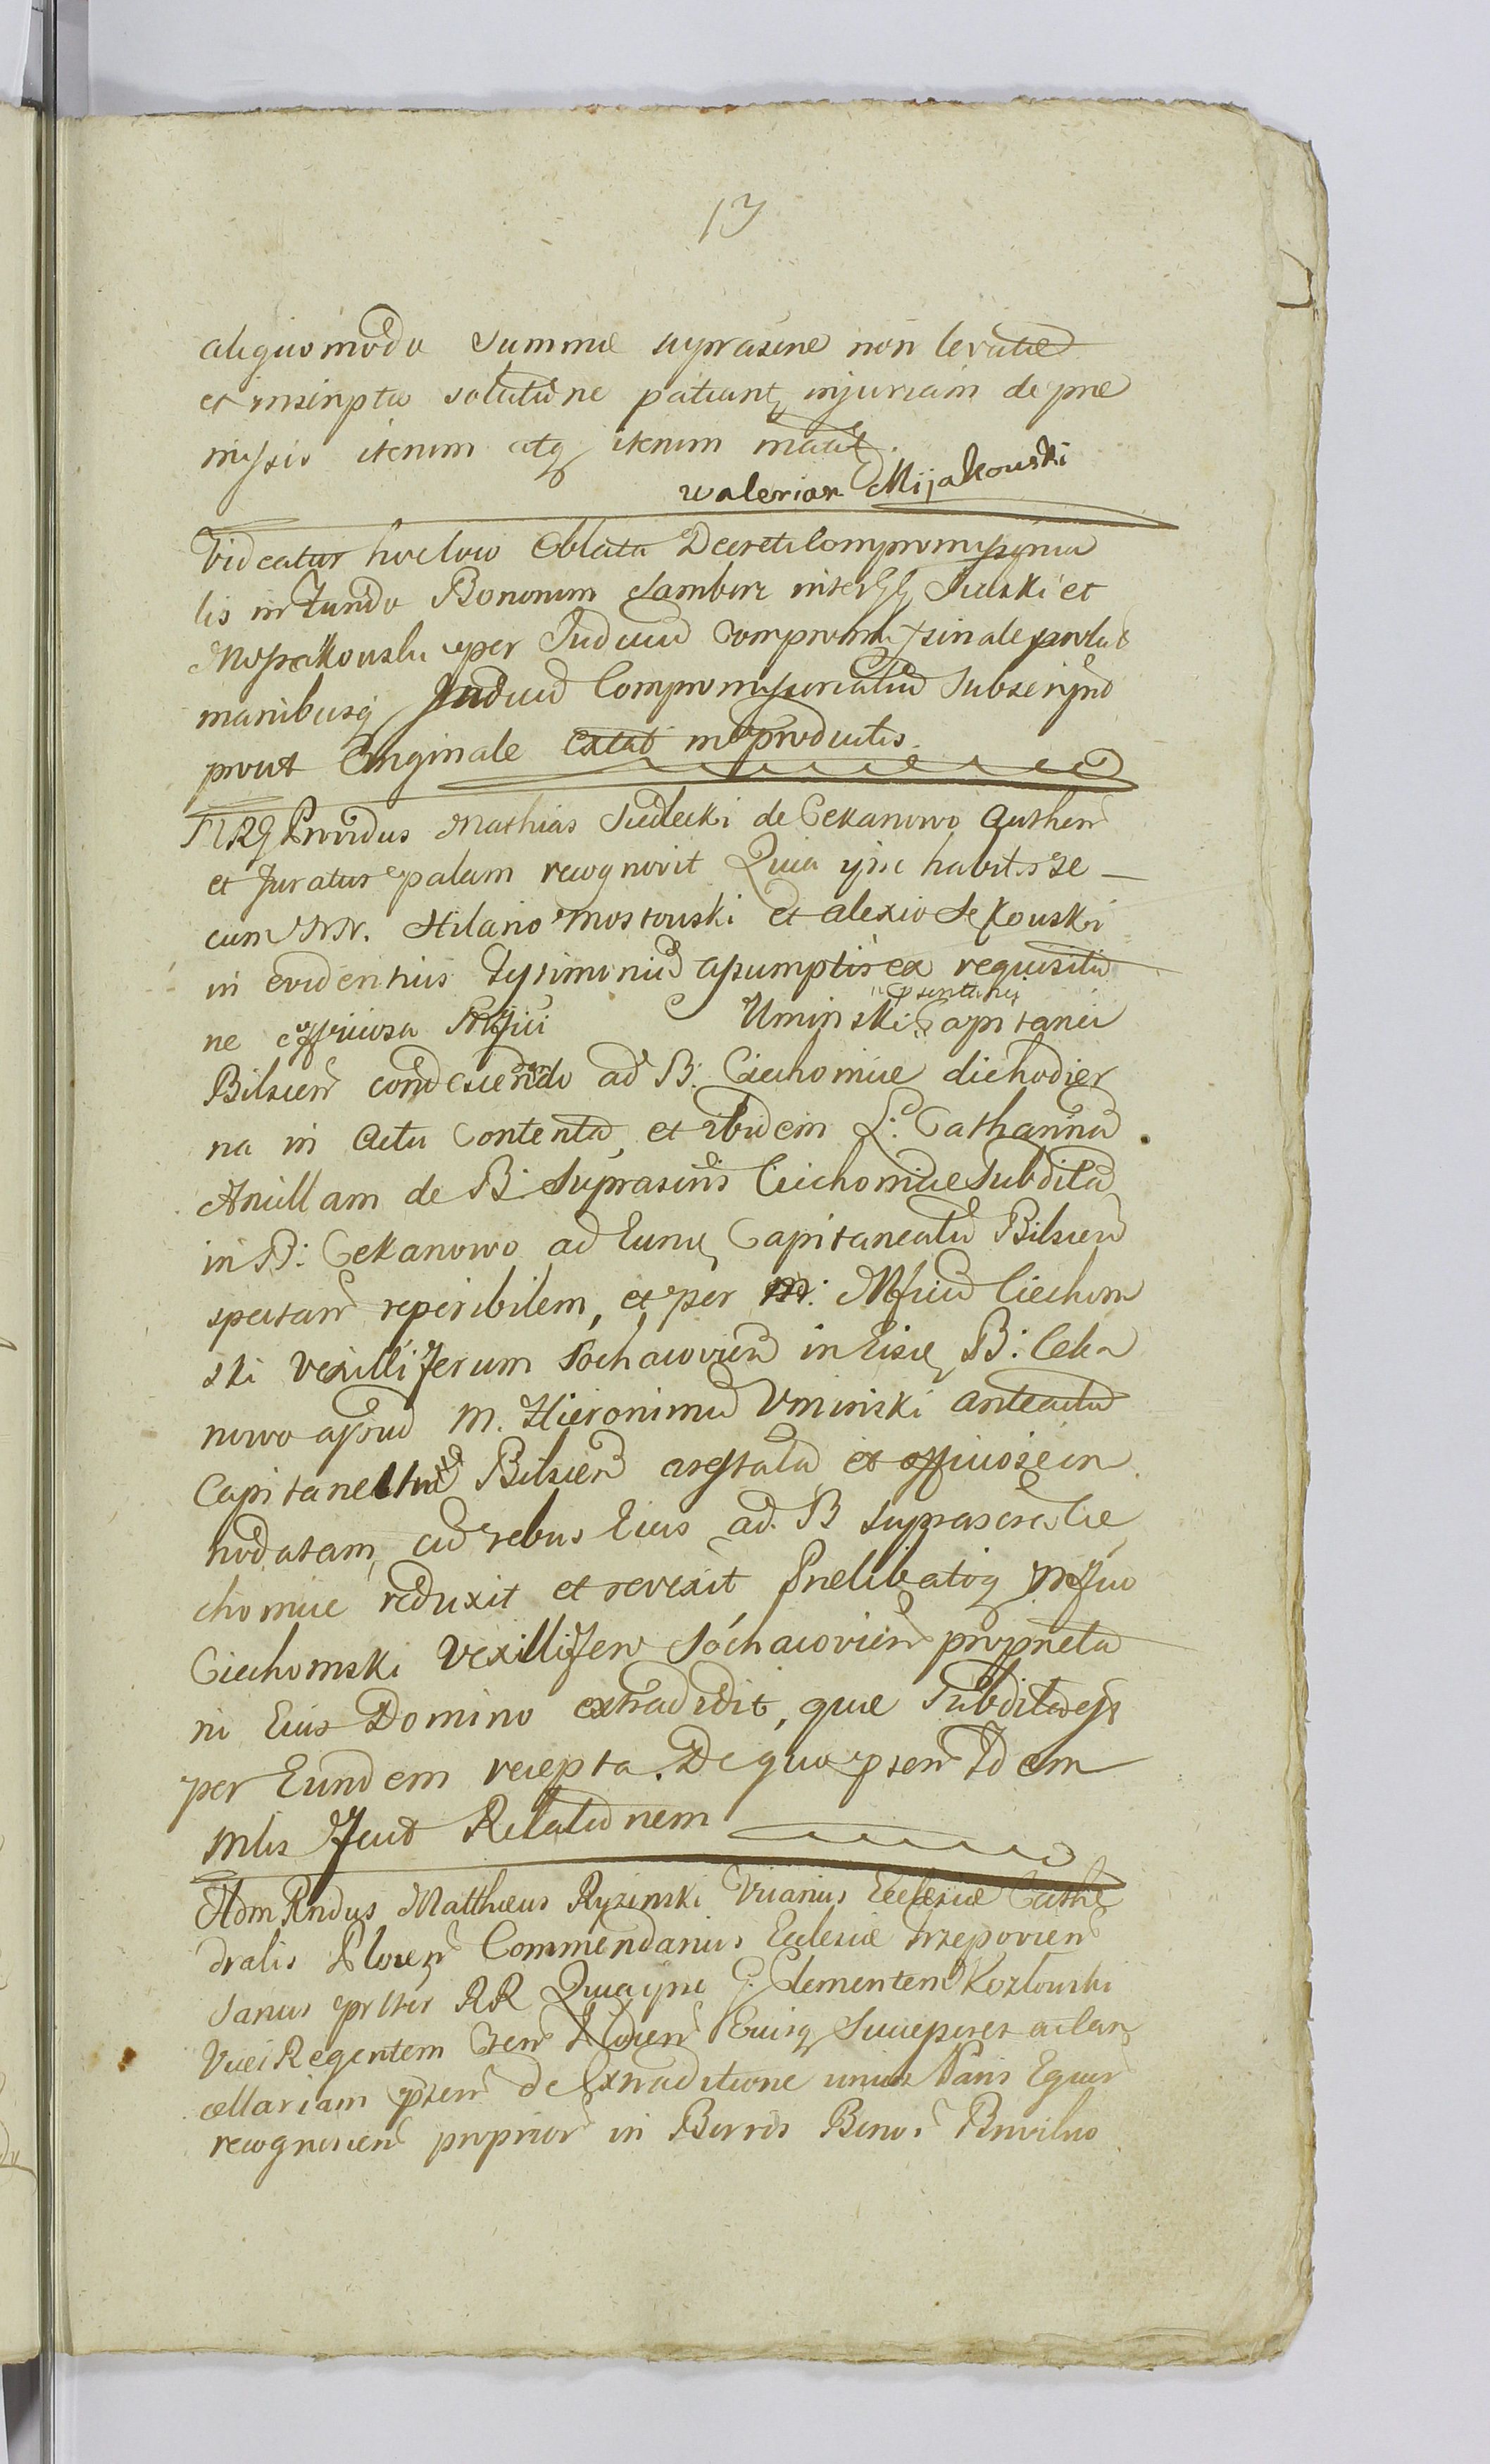 13
aliquo modo summae suprascrae non levatae
et inscriptae solutione patiantq injuriam de prae
missis iterum atq iterum mantt.
Walerian Mijakowski
Videatur hocloco Oblata Decreti Compromissoria
lis in Fundo Bonorum Sambor inter GG Sucski et
per Judicium Compromissoriale prolat
manibusq Judicum Compromissorialiud Subscriptud
prout Originale Extat in Productis.
MRG Providus Mathias Siedlecki de Cekanowo Authen
et Juratus palam recognovit Quia ipse habitis se
cum NN. Hilario Mostowski et Alexio Sękowski
in evidentius Testimoniud assumptis ex requisitio
ne officiosa Mfici Uminski psentanei Capitanei
Bilscen condescendendo ad B: Ciechomice die hodier
na in Actu Contenta, et ibidem L: Catharinad
Ancillam de B: Suprascris Ciechomice Subditad
in B: Cekanowo ad Eunq Capitaneatud Bilscen
spectan reperibilem, et per M: Mficud Ciechom
ski Vexilliferum Sochacovien in Eisq B: Ceka
nowo apud M. Hieronimud Uminski anteactud
Capitaneud Bilscen arestatad et officiose in
hodatam, cud rebus Eius ad B suprascrta Cie
chomice reduxit et revexit Praelibatoq Mfico
Ciechomski Vexillifero Sochacovien proprieta
rio Eius Domino extradidit, quae Subdita est
per Eundem recepta. De quo psen Idem
Mlis Fecit Relationem
Adm Rndus Matthaeus Ryzinski Vicarius Ecclesiae Cathe
dralis Plocen Commendarius Ecclesiae Trzepovien
sanus pr lter RR Quia ipse G. Clementem Kozlowski
Vice Regentem Cren Plocen Eiusq Succepores ac Can
cellariam psen de Extraditione unius Paris Equor
recognoscen proprior in Borris Bonor Brwilno